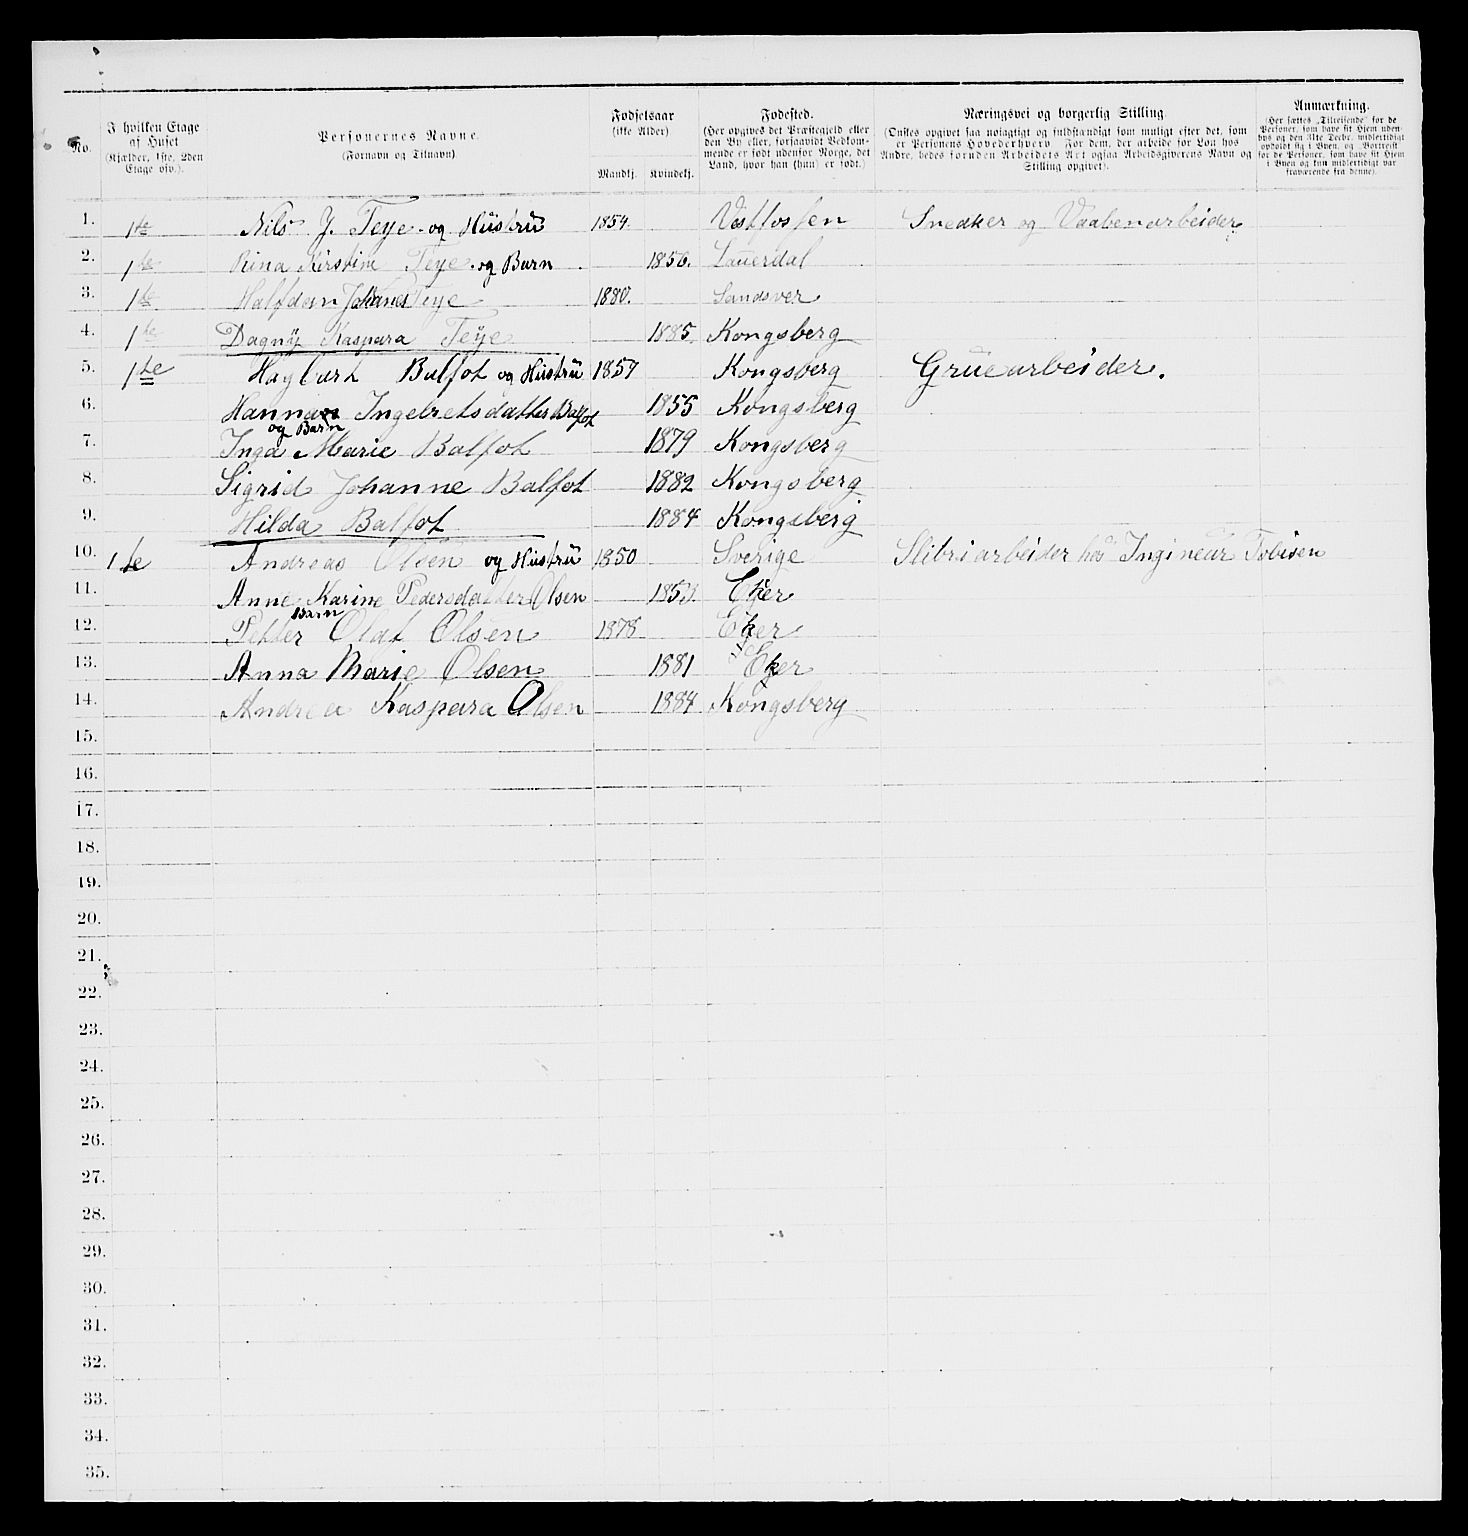 No.
I hvilken Etage af Huset (Kjælder, 1ste, 2den Etage osv.).
Personernes Navne. (Fornavn og Tilnavn).
Fødselsaar (ikke Alder) Mandkj. Kvindekj.
Fødested. (Her opgives det Præstegjeld eller den By eller, forsaavidt Vedkommende er født udenfor Norge, det Land, hvor han (hun) er født.)
Næringsvei og borgerlig Stilling. (Ønskes opgivet saa nøiagtigt og fuldstændigt som muligt efter det, som er Personens Hovederhverv. For dem, der arbeide for Løn hos Andre, bedes foruden Arbeidets Art ogsaa Arbeidsgiverens Navn og Stilling opgivet).
Anmærkning. (Her sættes „Tilreisende“ for de Personer, som have sit Hjem udenbys og den 31te Decbr. midlertidigt opholdt sig i Byen, og „Bortreist“ for de Personer, som have sit Hjem i Byen og kun midlertidigt var fraværende fra denne).
1. 1ste Nils J. Teye og Hüstrü 1854. Vestfossen Snedker og Vaabenarbeider
2. 1ste Rina Kirstine Teye og Barn 1856. Laüerdal
3. 1ste Halfdan Johanes Teye 1880. Sandsver
4. 1ste Dagny Kaspara Teye 1885. Kongsberg
5. 1ste Hagbart Balfot og Hüstrü 1854 Kongsberg Grüearbeider.
6. Hanna Ingebretsdatter Balfot 1855 Kongsberg
og Barn
7. Inga Marie Balfot 1879 Kongsberg
8. Sigrid Johanne Balfot 1882 Kongsberg
9. Hilda Balfot 1884 Kongsberg
10. 1ste Andreas Olsen og Hüstrü 1850 Sverige Slibriarbeider hos Ingineür Tobisen
11. Anne Karine Pedersdatter Olsen 1853. Eker
Barn
12. Petter Olaf Olsen 1878 Eker
13. Anna Marie Olsen 1881 Eker
14. Andrea Kaspara Olsen 1884 Kongsberg
15.
16.
17.
18.
19.
20.
21.
22.
23.
24.
25.
26.
27.
28.
29.
30.
31.
32.
33.
34.
35.